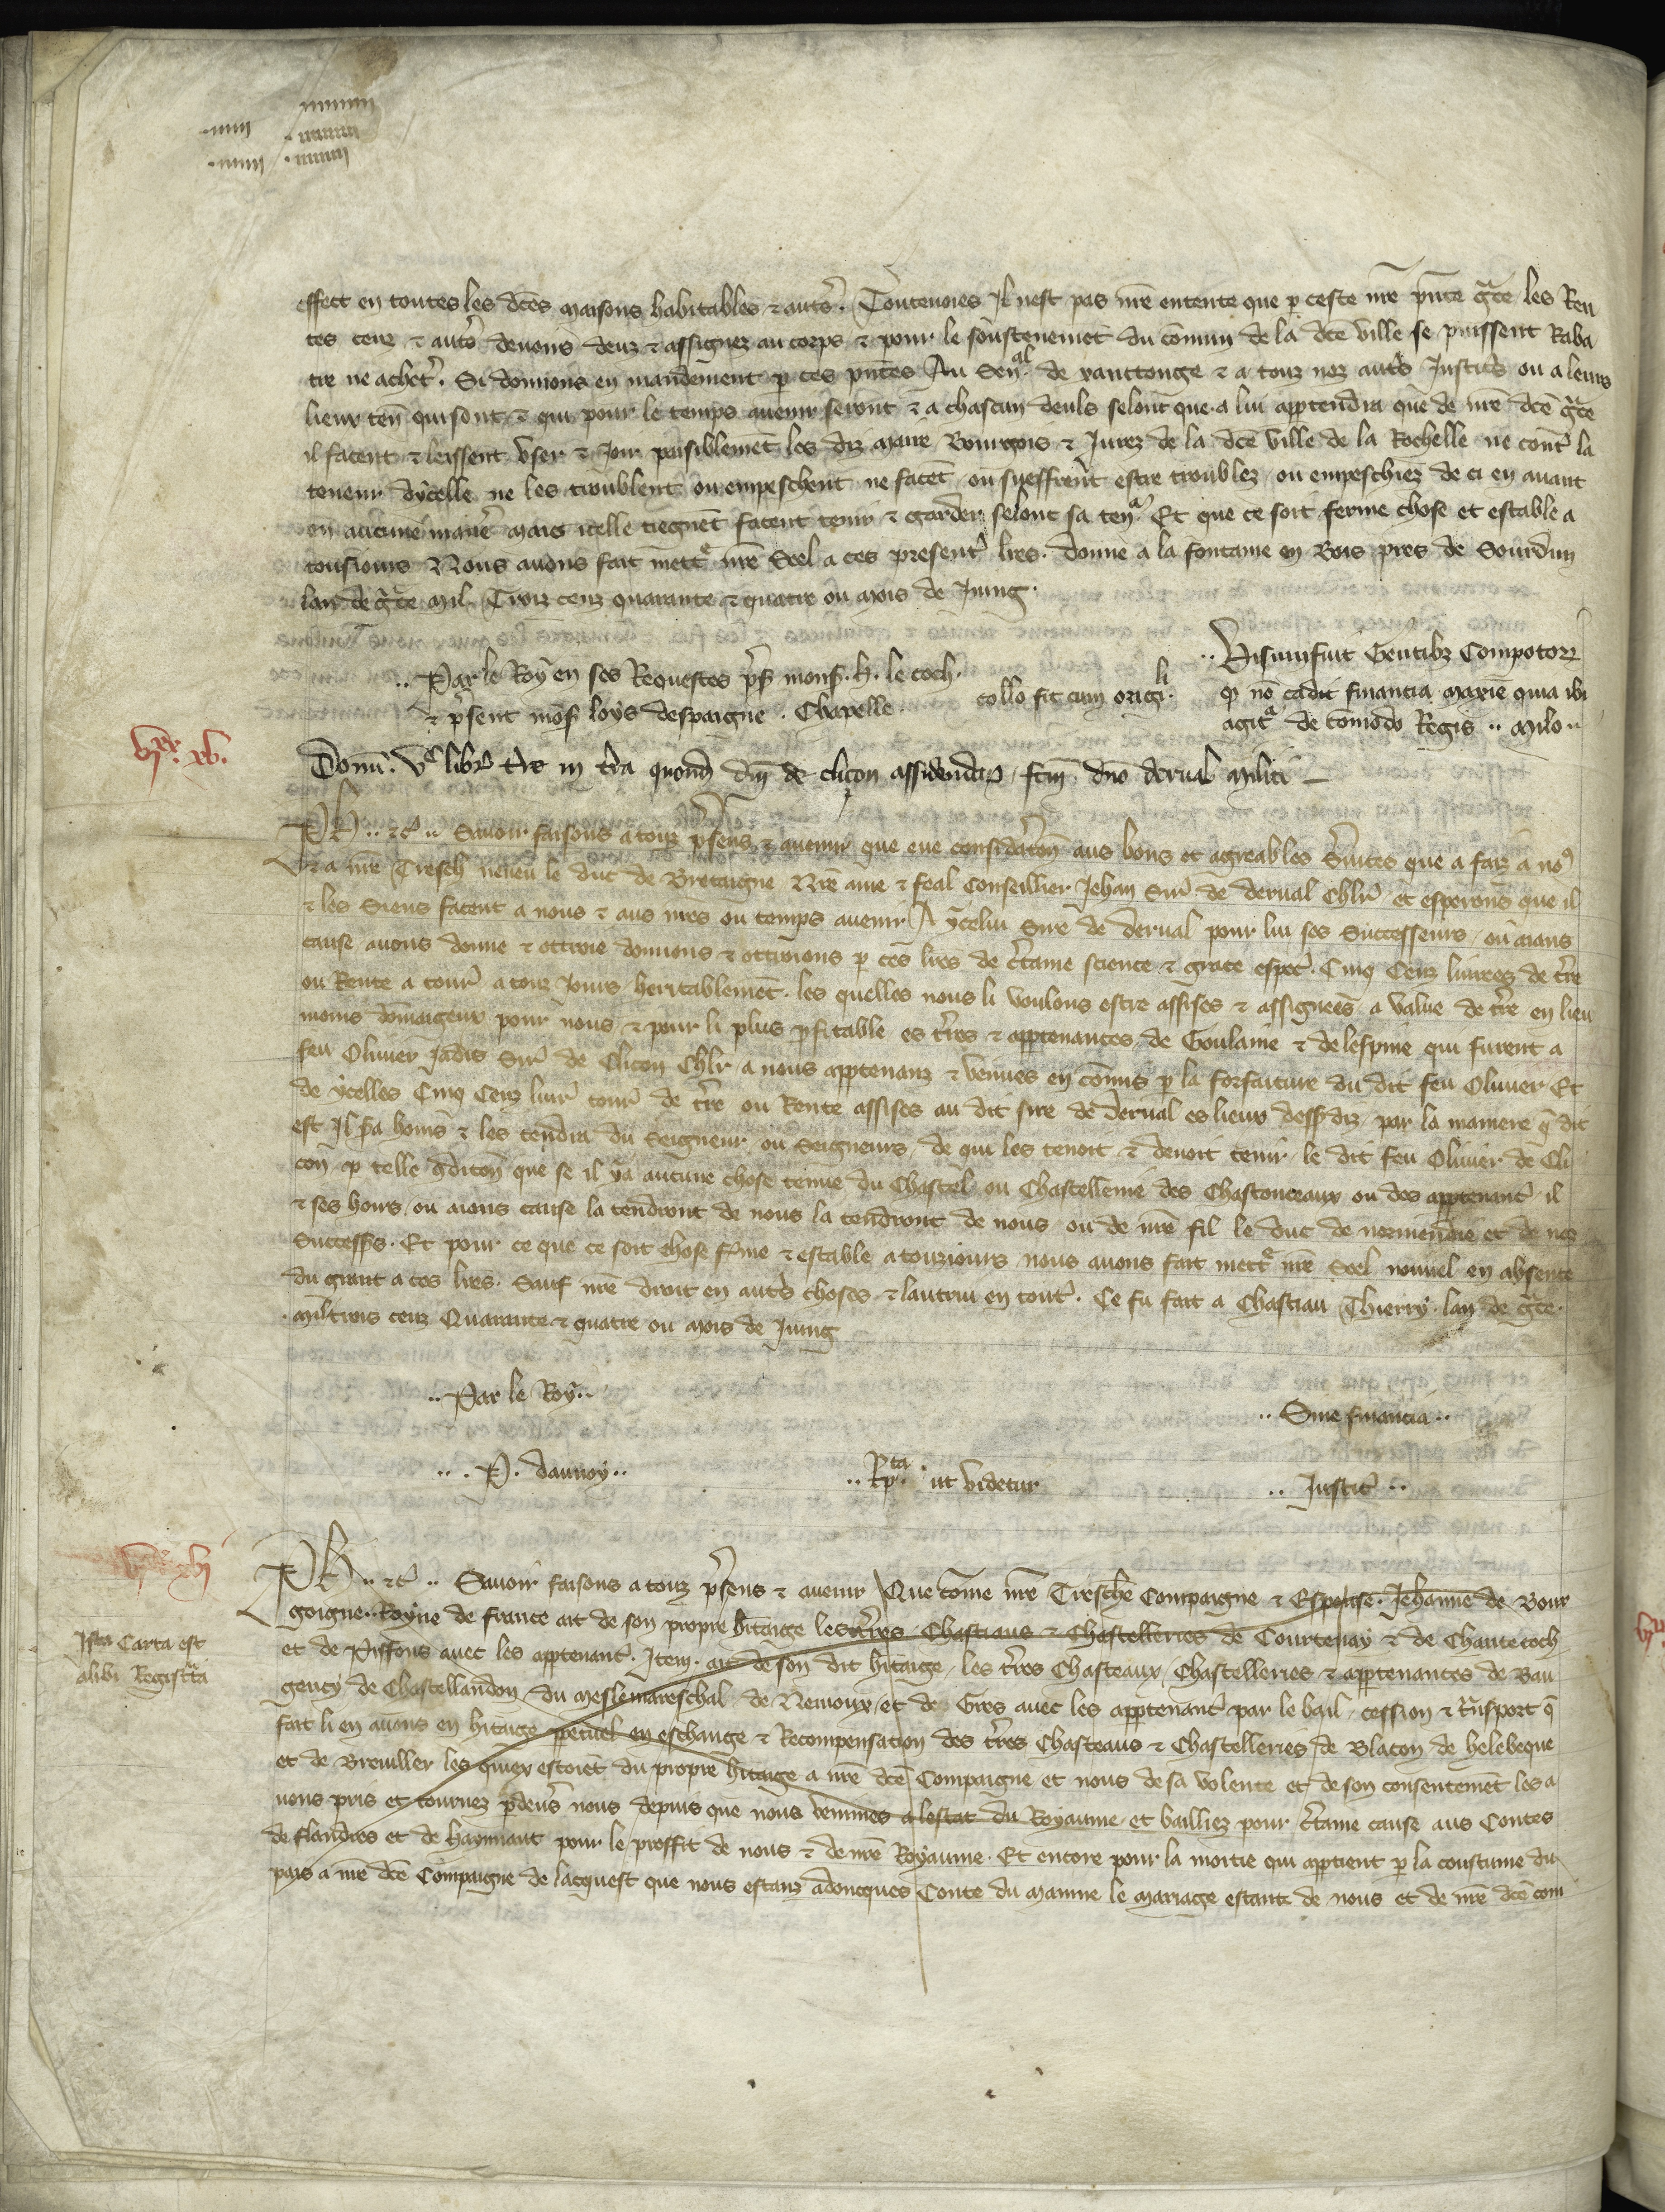 effect en toutes les dc̃es maisons habitables ⁊ aut̾s. Toutevoies Il nest pas nr̃e entente que p ceste nr̃e pñte gr̃ce les Ren
tes cenz ⁊ aut̾s devoirs deuz ⁊ assignez au corps ⁊ pour le soustenemẽt du cõmun de la dc̃e ville se puissent Raba
tre ne achet̾. Si donnons en mandement p ces pñtes Au Sen̾al de xanctonge ⁊ a touz noz aut̾s Justic̾s ou a leurs
lieux ten̾ qui sont ⁊ qui pour le temps avenir seront ⁊ a chascun deuls selont que a lui apptendra que de nr̃e dc̃e gr̃ce
il facent ⁊ leissent user ⁊ Joir paisiblemẽt les diz maire Bourgois ⁊ Jurez de la dc̃e ville de la Rochelle ne cont̾ la
teneur dycelle ne les troublent ou empeschent ne facẽt ou sueffrent estre troublez ou empeschiez de ci en avant
en aucune manie̾ mais icelle tiegnẽt facent tenir ⁊ garder selont sa ten̾. Et que ce soit ferme chose et estable a
tousiours Nous avons fait mettr̾ nr̃e Seel a ces present̾ lr̃es. Donne a la fontaine en Bois pres de Sourdun
lan de gr̃ce Mil Troiz cenz quarante ⁊ quatre ou mois de Juing.
.. Visum fuit Gentibz Compotor̃
.. Par le Roy en ses Requestes p̃s mons̾. H. le coch.
⁊ p̃sent mõs̾ loys despaigne. Chapelle. collo fit cum origli.
q nõ cadit financia maxie quia ibi
agit̾ de comodo Regis .. Milo ..
vjxx. xv.
Donũ. vc libr̾ t̾re in t̾ra quond̾ dñi de clicon assidendar̃ fc̃m dño derval militi
Ph̾ .. ⁊c̃ .. Savoir faisons a touz p̃sens ⁊ avenir que eue consid̾atõn aus bons et agreables S̾vices que a faiz a no9
⁊ a nr̃e Tresch̾ neveu le duc de Bretaigne Nr̃e ame ⁊ feal Conseillier Jehan Sire de derval Chl̾r et esperons que il
⁊ les Siens facent a nous ⁊ aus nr̃es ou temps avenir. A ycelui Sire de derval pour lui ses Successeurs ou aians
cause avons donne ⁊ ottroie donnons ⁊ ottroions p ces lr̃es de c̾taine science ⁊ grace especi̾. Cinq Cenz livrees de t̾re
ou Rente a tour̾ a touz Jours heritablemẽt. les quelles nous li voulons estre assises ⁊ assignees a value de t̾re en lieu
moins domaigeux pour nous ⁊ pour li plus pfitable es t̾res ⁊ apptenances de Goulaine ⁊ de lespine qui furent a
feu Olivier Jadis Sire de Clicon Chl̾r a nous apptenanz ⁊ venues en comis p la forfaiture du dit feu Olivier Et
de ycelles Cinq Cenz livr̾ tour̾ de t̾re ou Rente assises au dit sire de derval es lieux dess̾ diz par la maniere q̃ dit
est Il s̾a homs ⁊ les tendra du Seigneur ou Seigneurs de qui les tenoit ⁊ devoit tenir le dit feu Olivier de Cli
con p telle 9ditõn que se il ya aucune chose tenue du Chastel ou Chastellenie des Chastonceaux ou des apptenanc̾ il
⁊ ses hoirs ou aians cause la tendront de nous la tendront de nous ou de nr̃e fil le duc de normendie et de noz
Success̾s. Et pour ce que ce soit chose f̾me ⁊ estable a touziours nous avons fait mettr̾ nr̃e Seel nouvel en absence
du grant a ces lr̃es. Sauf nr̃e droit en aut̾s choses ⁊ lautrui en tout̾. Ce fu fait a Chastiau Thierry. lan de gr̃ce
mil trois cenz Quarante ⁊ quatre ou mois de Juing
.. Par le Roy ..
.. Sine financia ..
.. . P. daunoy .. .. Rpta. ut videtur .. Justic̾ ..
vjxx xvj
Ph̾ .. ⁊c̃ .. Savoir faisons a touz p̃sens ⁊ avenir Que come nr̃e Tresche Compaigne ⁊ Espouse Jehanne de Bour
goigne Royne de france ait de son propre h̾itaige les t̾res Chastiaus ⁊ Chastelleries de Courtenay ⁊ de Chantecoch
et de Piffons avec les apptenanc̾. Item ait de son dit h̾itaige les t̾res Chasteaux Chastelleries ⁊ apptenances de Bau
gency de Chastellandon du Meslemareschal de Nemoux et de Gres avec les apptenanc̾ par le bail cession ⁊ t̾nsport q̃
fait li en avons en h̾itaige petuel en eschange ⁊ Recompensation des t̾res Chasteaus ⁊ Chastelleries de Blaton de helebeque
et de Breviller les quiex estoiẽt du propre h̾itaige a nr̃e dc̃e Compaigne et nous de sa volente et de son consentemẽt les a
vons pris et tournez p devs̾ nous depuis que nous venimes a lestat du Royaume et bailliez pour c̾taine cause aus Contes
de flandres et de haynnaut pour le proffit de nous ⁊ de nr̃e Royaume. Et encore pour la moitie qui apptient p la coustume du
pais a nr̃e dc̃e Compaigne de lacquest que nous estanz adoncques Conte du Mainne le mariage estant de nous et de nr̃e dc̃e com
Ista Carta est
alibi Registr̃ta